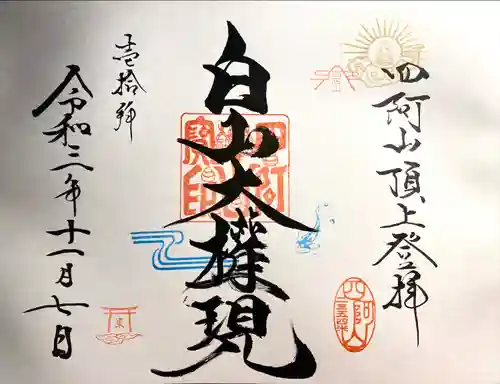 四阿山頂上登拝
白山大権現
壱拾号
令和三年十一月七日
四阿山